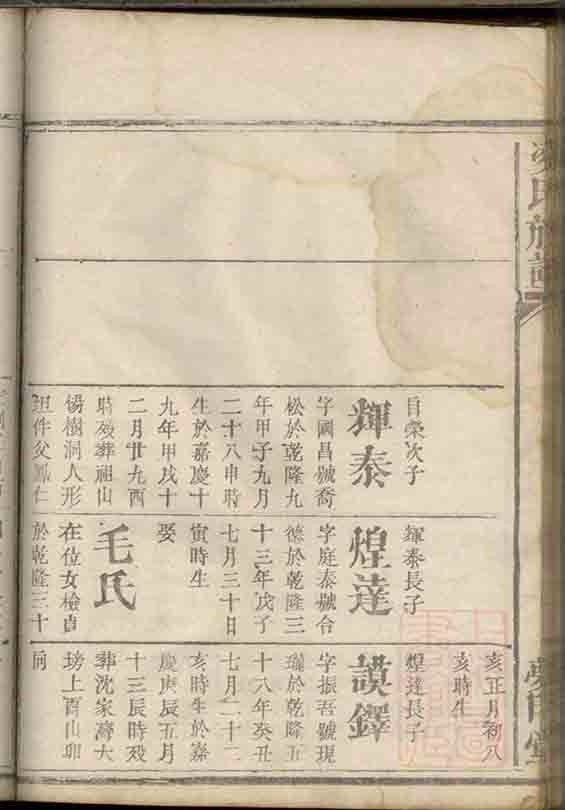 氏族譜
目榮次子
輝泰
字國昌號喬
松於乾隆九
年甲子九月
二十八申時
生於嘉慶十
九年甲戌十
二月廿九酉
時歿葬祖山
楊樹洞人形
坦件父鳳仁
輝泰長子
煌達
字庭泰號合
德於乾隆三
十三年戊子
七月三十日
寅時生
娶
毛氏
在位女檢貞
於乾隆三十
亥正月初八
亥時生
煌達長子
謨鐸
字振吾號現
瑞於乾隆五
十八年癸丑
七月二十二
亥時生於嘉
慶庚辰五月
十三辰時歿
葬沈家灣大
塝上酉山卯
向
堂